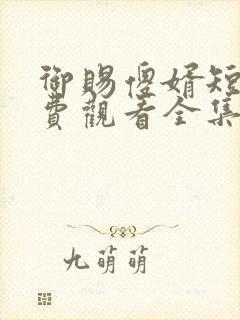 御賜傻婿短
費觀看全集
九萌萌